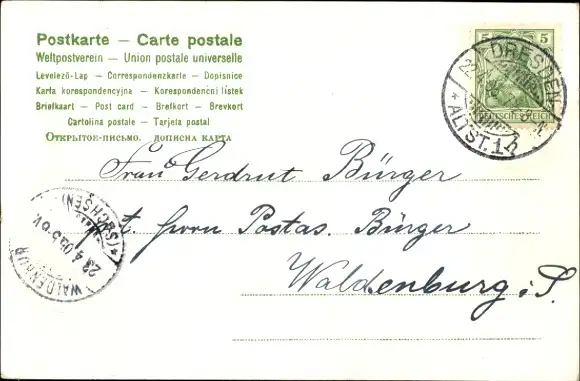 Postkarte — Carte postale
Weltpostverein — Union postale universelle
Levelező-Lap — Correspondenzkarte — Dopisnice
Karta korespondencyjna — Korespondenční lístek
Briefkaart — Post card — Brefkort — Brevkort
Cartolina postale — Tarjeta postal
Открытое-письмо. дописна карта
5 5
DEUTSCHES REICH
DRESDEN
* ALTST. 1
Frau Gerdrut Bürger
Bürger
Waldenburg i. S.
WALDENBURG
* (SACHSEN)
23 4 03 5-6 V.